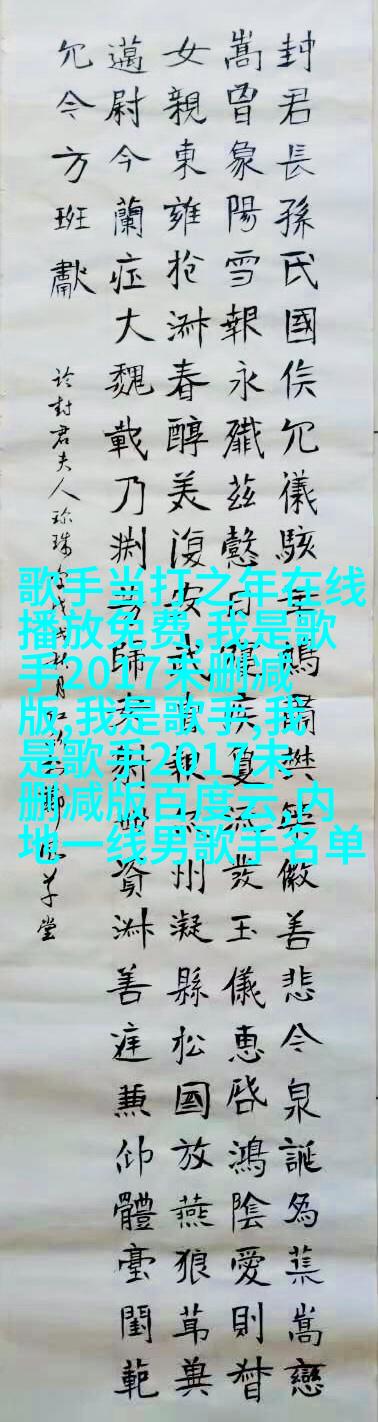 封君長孫氏國侯允儀駭徽善悲令泉誕為葉嵩戀
嵩曾象陽雪報永殲茲懿日疾夐流發玉儀惠啓鴻陰愛則
女親東雍春醇美復安武州凝縣松國放燕狼
邁尉今蘭大魏載乃淵芳師資善庭兼仰體臺閨範
允令方班獻
封君夫人珍珠月草堂
歌手当打之年在线
播放免费,我是歌
手2017未删减
版,我是歌手,我
是歌手2017未
删减版百度云,内
地一线男歌手名单